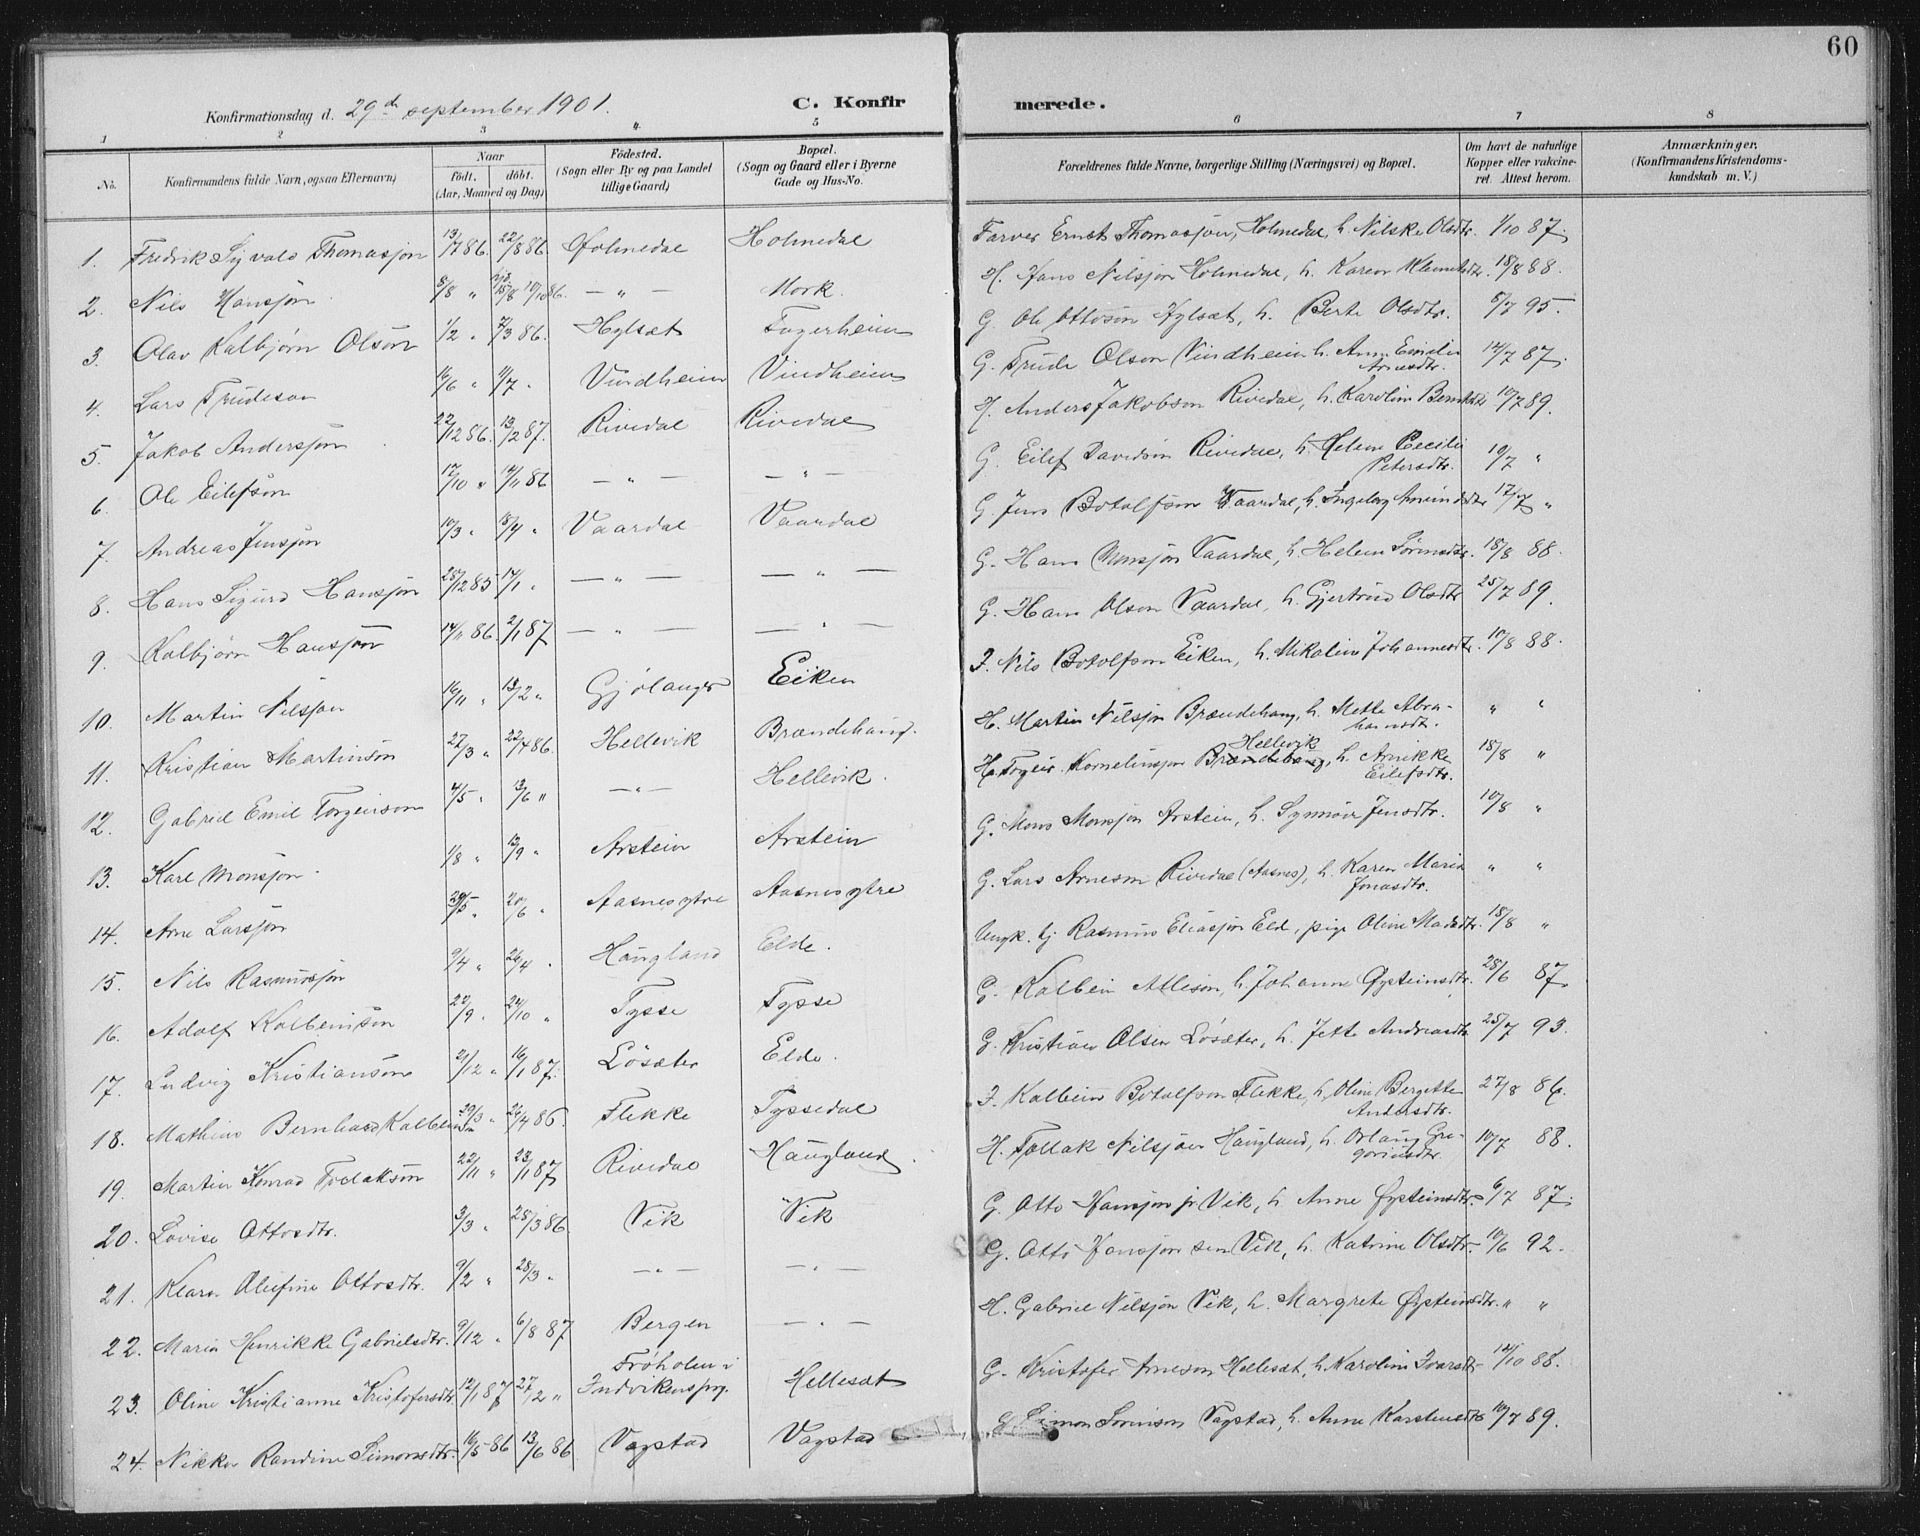 60
Konfirmationsdag d. 29de september 1901.
C. Konfirmerede.
1 2 3 4 5 6 7 8
No. Konfirmandens fulde Navn, ogsaa Efternavn) Naar Födt. döbt. (Aar, Maaned og Dag) Födested. (Sogn eller By og paa Landet tillige Gaard) Bopæl. (Sogn og Gaard eller i Byerne Gade og Hus-No. Forældrenes fulde Navne, borgerlige Stilling (Næringsvei) og Bopæl. Om havt de naturlige Kopper eller vakcineret. Attest herom. Anmærkninger. (Konfirmandens Kristendomskundskab m. V.)
1. Fredrik Sigvals Thomasjon 13/7 86. 22/8 86. Holmedal Holmedal Farver Ernst Thomasjon, Holmedal, h. Nilske Olsdtr. 1/10 87.
2. Nils Hansjon 8/8 " 15/8 10/10 86. — " — Mork. H. Hans Nilsjon Holmedal, h. Karen 18/8 88.
3. Olav Kolbjørn Olsøn 1/2 " 7/3 86. Hylsæt Fagerheim G. Ole Ottosøn Hylsæt, h. Berte Olsdtr. 8/7 95.
4. Lars Trudeson 16/6 " 11/7 " Vindheim Vindheim G. Trude Olson Vindheim h. Anne Emilie Arnesdtr. 14/7 87.
5. Jakob Andersjon 22/12 86. 13/2 87. Rivedal Rivedal H. Anders Jakobson Rivedal, h. Karolin 10/7 89.
6. Ole Eilefson 17/10 " 14/11 86 — " — — " — G. Eilef Davidson Rivedal, h. Helene Cecilie Petersdtr. 10/7 "
7. Andreas Jensjon 10/3 " 18/4 " Vaardal Vaardal G. Jens Botolfson Vaardal, h. Ingeborg Amundsdtr 17/7 "
8. Hans Sigurd Hansjon 25/12 85 17/1 " — " — — " — G. Hans Monsjon Vaardal, h. Helene Sørensdtr. 18/8 88.
9. Kolbjørn Hansjon 14/11 86. 2/1 87 — " — — " — G. Hans Olson Vaardal, h. Gjertrud Olsdtr 25/7 89.
10. Martin Nilsjon 16/11 " 13/2 " Gjølanger Eiken I. Nils Botolfson Eiken, h. Mikaline Johannesdtr. 10/8 88.
11. Kristian Martinson 27/3 " 22/4 86. Hellevik Brændehaug. H. Martin Nilsjon Brændehaug, h. Mette Abrahamsdtr. " "
12. Gabriel Emil Torgeirson 4/5 " 13/6 " — " — Hellevik. H. Torgeir Kornelinsjon Brændehaug Hellevik, h. Arnikke Eilefsdtr. 18/8 "
13. Karl Monsjon 1/8 " 12/9 " Arstein Arstein G. Mons Monsjon Arstein, h. Synnøve Jensdtr. 10/8 "
14. Arne Larsjon 29/5 " 20/6 " Aasnes ytre Aasnes ytre G. Lars Arneson Rivedal (Aasnes), h. Karen Maria Jonasdtr. " "
15. Nils Rasmusjon 9/4 " 26/4 " Haugland Elde. Ungk. tj. Rasmus Eliasjon Elde, pige Oline Madsdtr. 18/8 "
16. Adolf Kolbeinson 22/9 " 24/10 " Tysse Tysse G. Kolbein Atleson, h. Johanne Øysteinsdtr. 28/6 87
17. Ludvig Kristianson 21/12 " 16/1 87. Løsæter Elde. G. Kristian Olsen Løsæter, h. Jette Andreasdtr 25/7 93.
18. Mathias Bernhard Kolbeinson 29/3 " 26/4 86. Flekke Tyssedal I. Kolbein Botolfson Flekke, h. Oline Bergette Andersdtr. 27/8 86.
19. Martin Konrad Tollakson 22/11 " 23/1 87 Rivedal Haugland. H. Tollak Nilsjon Haugland, h. Orlaug Gregoriusdtr. 10/7 88.
20. Lovise Ottosdtr. 3/3 " 28/3 86. Vik Vik G. Otto Hansjon jr Vik, h. Anne Øysteinsdtr. 6/7 87.
21. Klara Olufine Ottosdtr. 9/2 " 28/3 " — " — — " — G. Otto Hansjon sen Vik, h. Katrine Olsdtr. 10/6 92.
22. Maria Henrikke Gabrielsdtr. 9/12 " 6/8 87 Bergen — " — H. Gabriel Nilsjon Vik, h. Margrete Øysteinsdtr. " "
23. Oline Kristianne Kristofersdtr. 12/1 87 27/2 " Frøholm i Indvikens prg. Hellesæt G. Kristofer Arneson Hellesæt, h. Karoline Ivarsdtr 12/10 88.
24. Nikka Randine Simonsdtr. 16/5 86 13/6 86 Vagstad Vagstad G. Simon Sørenson Vagstad, h. Anne Karstensdtr 10/7 89.